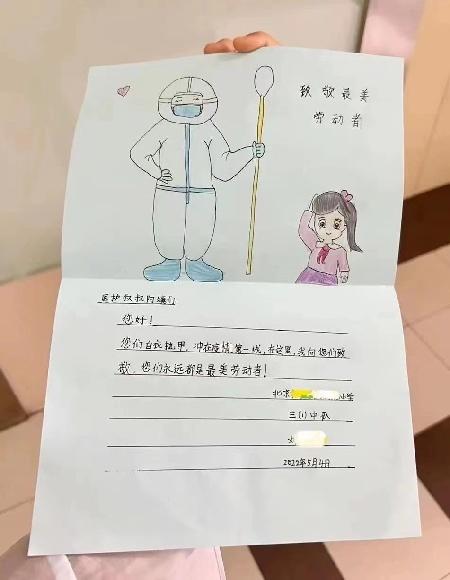 致敬最美
劳动者
医护叔叔阿姨们
您好！
您们白衣披甲，冲在疫情第一线，在这里，我向您们致
敬，您们永远都是最美劳动者！
北京小学
三(1)中队
2022年5月4日